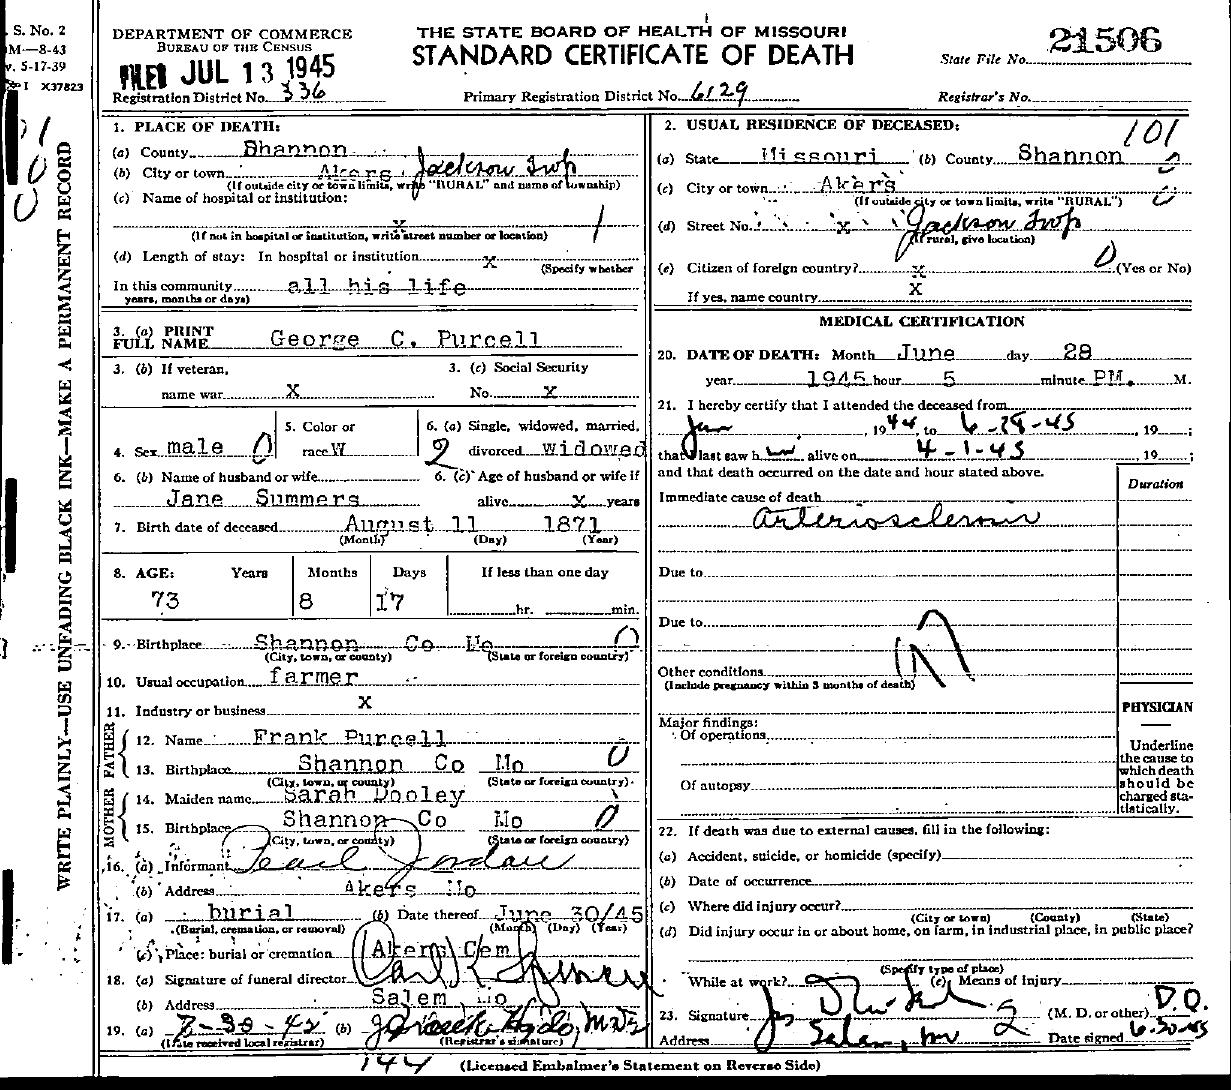 S. No. 2
M—8-43
v. 5-17-39
I X37823
WRITE PLAINLY—USE UNFADING BLACK INK—MAKE A PERMANENT RECORD
DEPARTMENT OF COMMERCE
BUREAU OF THE CENSUS
FILED JUL 13 1945
Registration District No. 336
THE STATE BOARD OF HEALTH OF MISSOURI
STANDARD CERTIFICATE OF DEATH
Primary Registration District No. 6129
State File No. 21506
Registrar's No.
1. PLACE OF DEATH:
(a) County Shannon
(b) City or town Akers Jackson Twp
(If outside city or town limits, write "RURAL" and name of township)
(c) Name of hospital or institution:
x
(If not in hospital or institution, write street number or location)
(d) Length of stay: In hospital or institution x
(Specify whether
In this community all his life
years, months or days)
3. (a) PRINT FULL NAME George C. Purcell
3. (b) If veteran, name war X
3. (c) Social Security No. X
4. Sex male
5. Color or race W
6. (a) Single, widowed, married, divorced widowed
6. (b) Name of husband or wife
6. (c) Age of husband or wife if
Jane Summers alive x years
7. Birth date of deceased August 11 1871
(Month) (Day) (Year)
8. AGE: Years Months Days If less than one day
73 8 17 hr. min.
9. Birthplace Shannon Co Mo
(City, town, or county) (State or foreign country)
10. Usual occupation farmer
11. Industry or business X
FATHER
12. Name Frank Purcell
13. Birthplace Shannon Co Mo
(City, town, or county) (State or foreign country)
MOTHER
14. Maiden name Sarah Dooley
15. Birthplace Shannon Co Mo
(City, town, or county) (State or foreign country)
16. (a) Informant Pearl Jordan
(b) Address Akers Mo
17. (a) burial (b) Date thereof June 30/45
(Burial, cremation, or removal) (Month) (Day) (Year)
(c) Place: burial or cremation Akers Cem
18. (a) Signature of funeral director Carl K Spencer
(b) Address Salem, Mo
19. (a) (b)
(Date received local registrar) (Registrar's signature)
2. USUAL RESIDENCE OF DECEASED:
101
(a) State Missouri (b) County Shannon
(c) City or town Akers
(If outside city or town limits, write "RURAL")
(d) Street No. x Jackson Twp
(If rural, give location)
(e) Citizen of foreign country? x (Yes or No)
If yes, name country X
MEDICAL CERTIFICATION
20. DATE OF DEATH: Month June day 28
year 1945 hour 5 minute PM. M.
21. I hereby certify that I attended the deceased from
Jan, 1944, to 6-28-45, 19 ;
that I last saw him alive on 4-1-45, 19 ;
and that death occurred on the date and hour stated above.
Duration
Immediate cause of death
Arteriosclerosis
Due to
Due to
Other conditions
(Include pregnancy within 3 months of death)
Major findings:
Of operations
Of autopsy
PHYSICIAN
Underline the cause to which death should be charged statistically.
22. If death was due to external causes, fill in the following:
(a) Accident, suicide, or homicide (specify)
(b) Date of occurrence
(c) Where did injury occur?
(City or town) (County) (State)
(d) Did injury occur in or about home, on farm, in industrial place, in public place?
(Specify type of place)
While at work? (e) Means of injury
23. Signature (M. D. or other) D.O.
Address Salem, Mo Date signed 6-30-45
144
(Licensed Embalmer's Statement on Reverse Side)